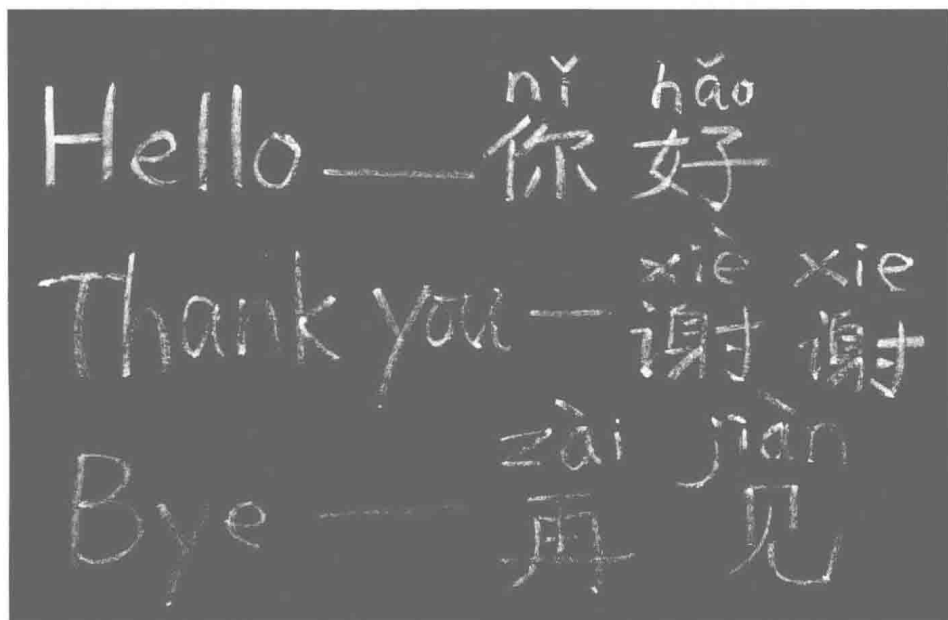 nǐ hǎo
Hello — 你 好
xiè xie
Thank you — 谢 谢
zài jiàn
Bye — 再 见